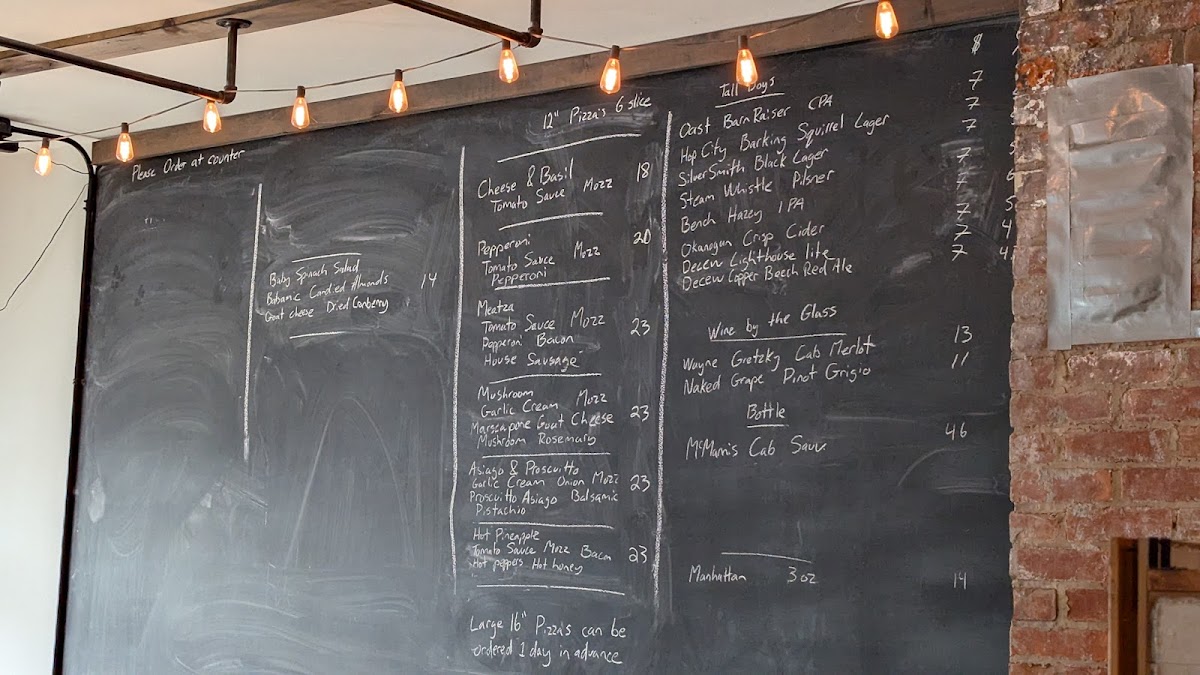 Please Order at counter
Baby Spinach Salad
Balsamic Candied Almonds 14
Goat cheese Dried Cranberry
12" Pizza's 6 slice
Cheese & Basil 18
Tomato Sauce Mozz
Pepperoni 20
Tomato Sauce Mozz
Pepperoni
Meatza
Tomato Sauce Mozz 23
Pepperoni Bacon
House Sausage
Mushroom
Garlic Cream Mozz 23
Marscapone Goat Cheese
Mushroom Rosemary
Asiago & Proscuitto
Garlic Cream Onion Mozz 23
Proscuitto Asiago Balsamic
Pistachio
Hot Pineapple
Tomato Sauce Mozz Bacon 23
Hot peppers Hot honey
Large 16" Pizza's can be
ordered 1 day in advance
Tall Boys $
Oast Barn Raiser CPA 7
Hop City Barking Squirrel Lager 7
SilverSmith Black Lager 7
Steam Whistle Pilsner 7
Bench Hazey IPA 7
Okanogan Crisp Cider 7
Decew Lighthouse lite 7
Decew Copper Beech Red Ale 7
Wine by the Glass
Wayne Gretzky Cab Merlot 13
Naked Grape Pinot Grigio 11
Bottle
McManis Cab Sauv 46
Manhattan 3oz 14